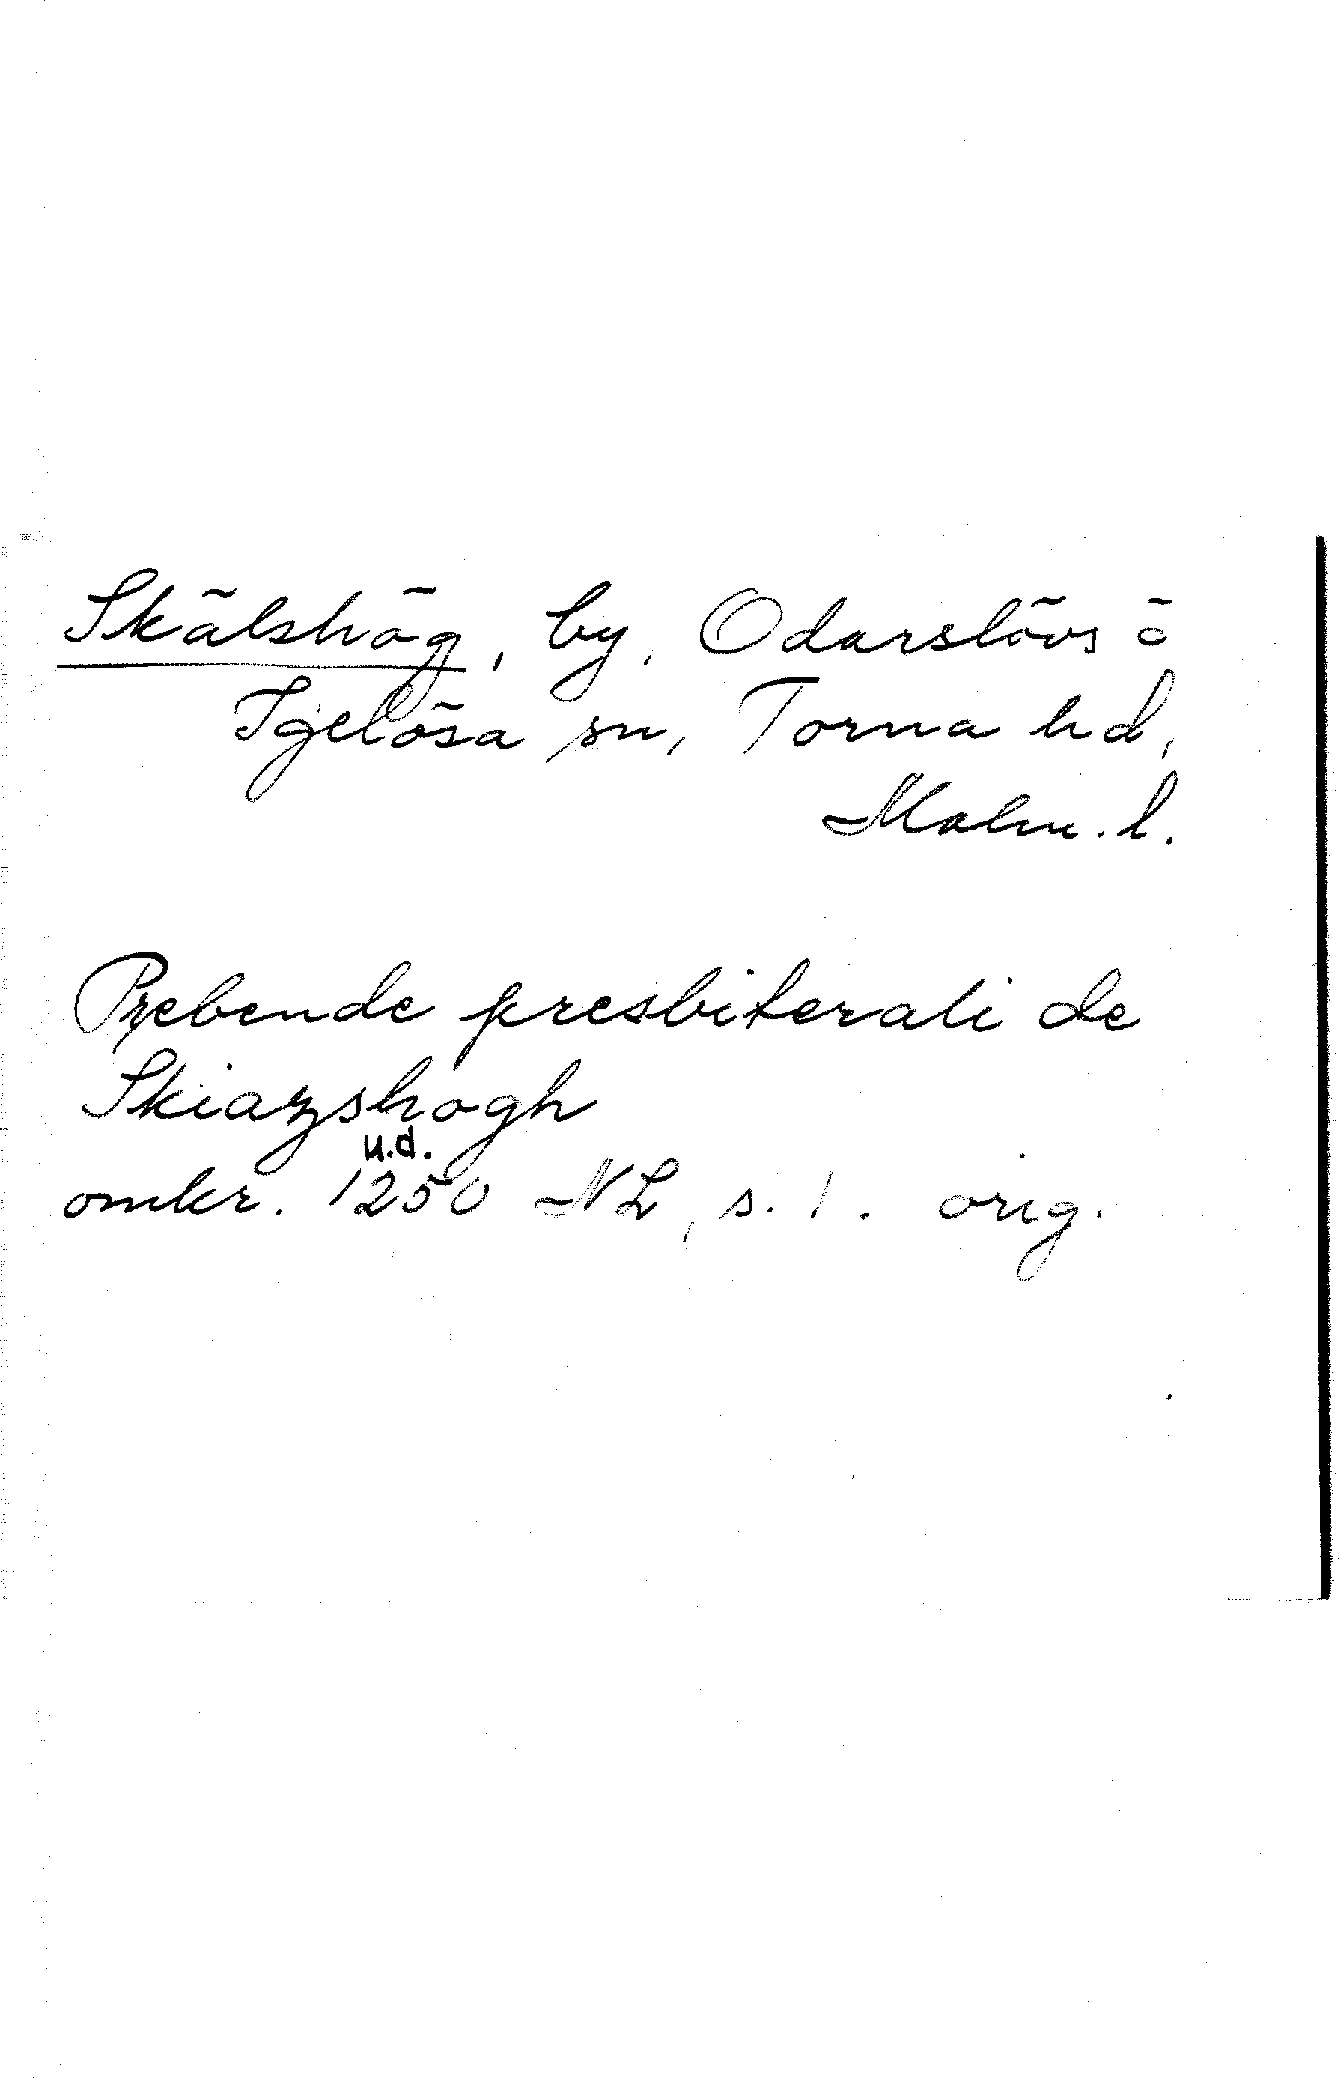 Skälshög, by, Odarslövs o
Igelösa sn, Torna hd,
Malm. l.
Prebende presbiterali de
Skiarzshogh
u.d.
omkr. 1250 NL, s. 1. orig.